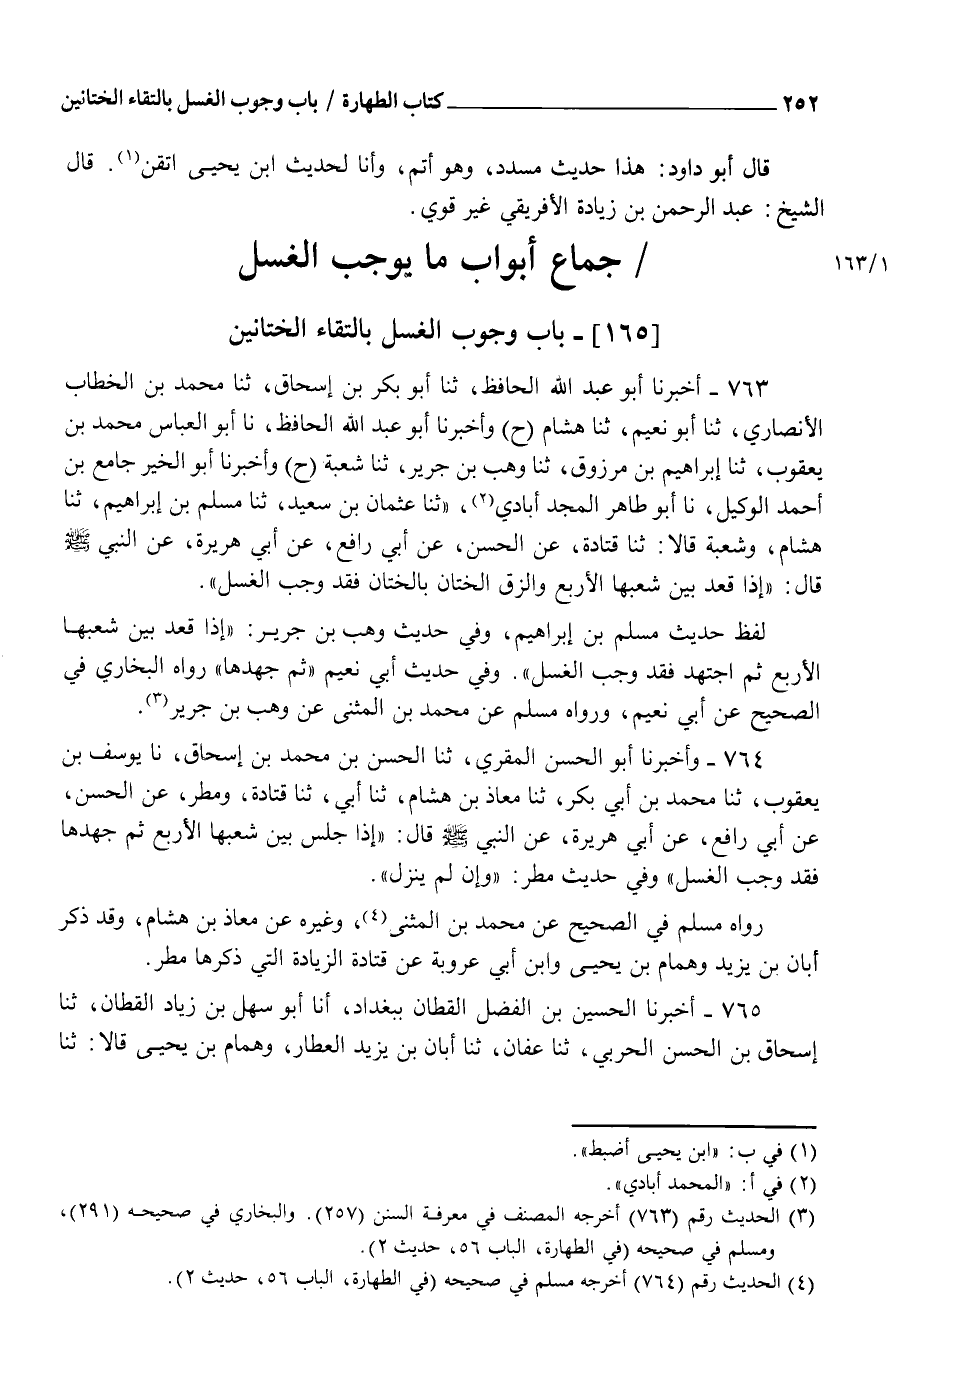 ٢٥٢ ـــــــــــــ كتاب الطهارة / باب وجوب الغسل بالتقاء الختانين
قال أبو داود: هذا حديث مسدد، وهو أتم، وأنا لحديث ابن يحيى اتقن(١). قال
الشيخ: عبد الرحمن بن زيادة الأفريقي غير قوي.
١٦٣/١
/ جماع أبواب ما يوجب الغسل
[١٦٥] ـ باب وجوب الغسل بالتقاء الختانين
٧٦٣ ـ أخبرنا أبو عبد الله الحافظ، ثنا أبو بكر بن إسحاق، ثنا محمد بن الخطاب
الأنصاري، ثنا أبو نعيم، ثنا هشام (ح) وأخبرنا أبو عبد الله الحافظ، نا أبو العباس محمد بن
يعقوب، ثنا إبراهيم بن مرزوق، ثنا وهب بن جرير، ثنا شعبة (ح) وأخبرنا أبو الخير جامع بن
أحمد الوكيل، نا أبو طاهر المجد أبادي(٢)، «ثنا عثمان بن سعيد، ثنا مسلم بن إبراهيم، ثنا
هشام، وشعبة قالا: ثنا قتادة، عن الحسن، عن أبي رافع، عن أبي هريرة، عن النبي ﷺ
قال: «إذا قعد بين شعبها الأربع والزق الختان بالختان فقد وجب الغسل».
لفظ حديث مسلم بن إبراهيم، وفي حديث وهب بن جرير: «إذا قعد بين شعبها
الأربع ثم اجتهد فقد وجب الغسل». وفي حديث أبي نعيم «ثم جهدها» رواه البخاري في
الصحيح عن أبي نعيم، ورواه مسلم عن محمد بن المثنى عن وهب بن جرير(٣).
٧٦٤ ـ وأخبرنا أبو الحسن المقري، ثنا الحسن بن محمد بن إسحاق، نا يوسف بن
يعقوب، ثنا محمد بن أبي بكر، ثنا معاذ بن هشام، ثنا أبي، ثنا قتادة، ومطر، عن الحسن،
عن أبي رافع، عن أبي هريرة، عن النبي ﷺ قال: «إذا جلس بين شعبها الأربع ثم جهدها
فقد وجب الغسل» وفي حديث مطر: «وإن لم ينزل».
رواه مسلم في الصحيح عن محمد بن المثنى(٤)، وغيره عن معاذ بن هشام، وقد ذكر
أبان بن يزيد وهمام بن يحيى وابن أبي عروبة عن قتادة الزيادة التي ذكرها مطر.
٧٦٥ ـ أخبرنا الحسين بن الفضل القطان ببغداد، أنا أبو سهل بن زياد القطان، ثنا
إسحاق بن الحسن الحربي، ثنا عفان، ثنا أبان بن يزيد العطار، وهمام بن يحيى قالا: ثنا
(١) في ب: «ابن يحيى أضبط».
(٢) في أ: «المحمد أبادي».
(٣) الحديث رقم (٧٦٣) أخرجه المصنف في معرفة السنن (٢٥٧). والبخاري في صحيحه (٢٩١)،
ومسلم في صحيحه (في الطهارة، الباب ٥٦، حديث ٢).
(٤) الحديث رقم (٧٦٤) أخرجه مسلم في صحيحه (في الطهارة، الباب ٥٦، حديث ٢).